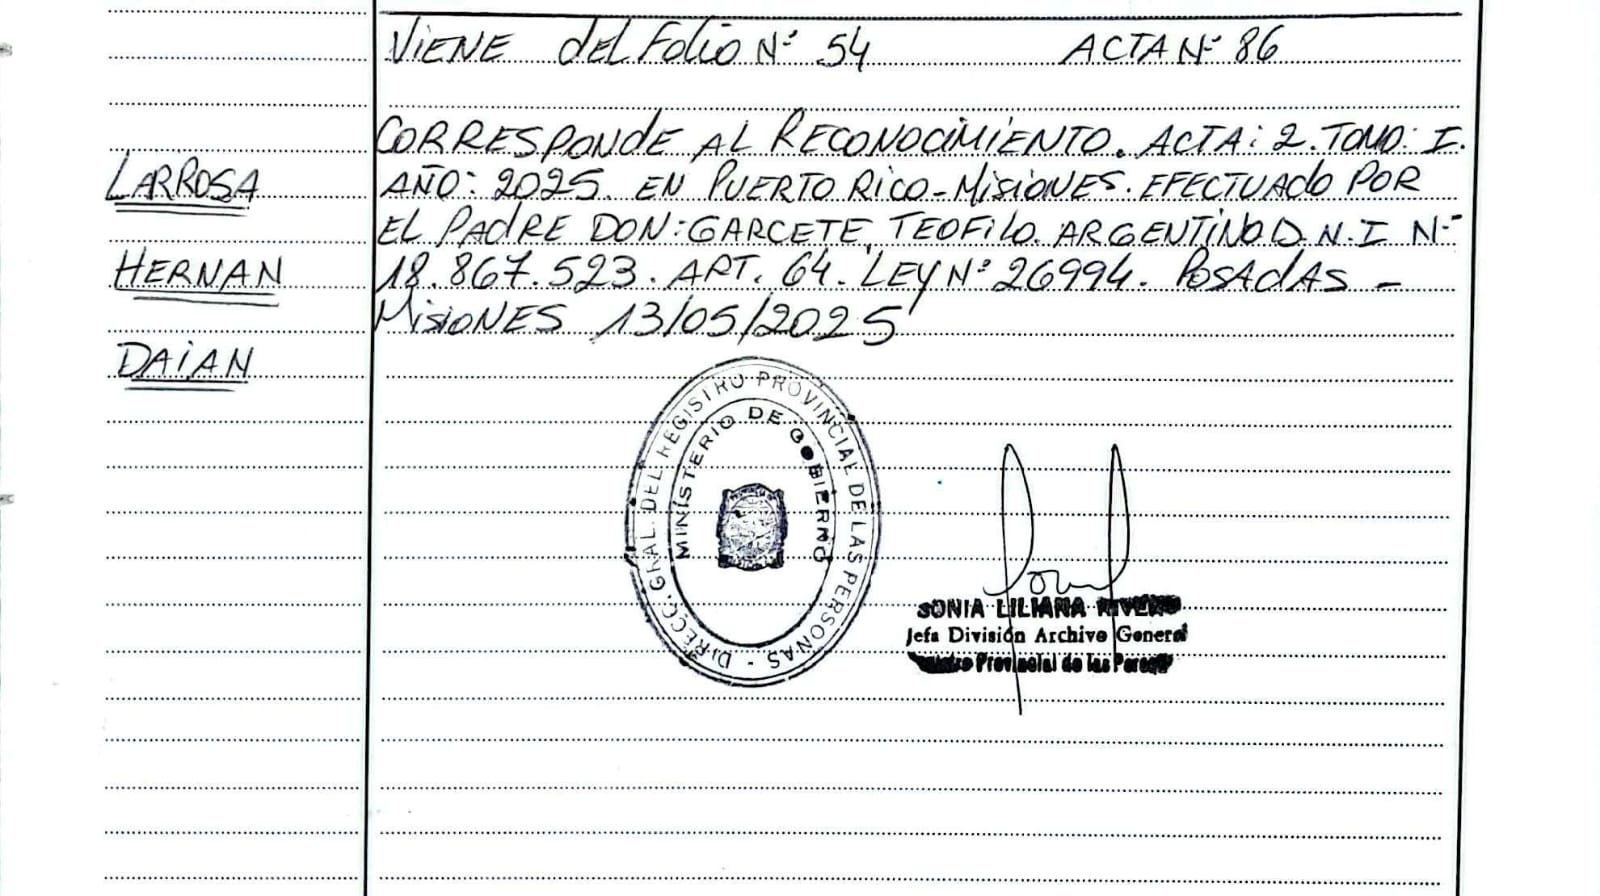 VIENE del Folio Nº 54 ACTA Nº 86
CORRESPONDE AL RECONOCIMIENTO. ACTA: 2. TOMO: I.
LARROSA
AÑO: 2025. EN PUERTO RICO-MISIONES. EFECTUADO POR
EL PADRE DON: GARCETE, TEOFILO. ARGENTINO D.N.I Nº
HERNAN
18.867.523. ART. 64. LEY Nº 26994. POSADAS -
MISIONES 13/05/2025
DAIAN
DIRECC. GRAL. DEL REGISTRO PROVINCIAL DE LAS PERSONAS -
MINISTERIO DE GOBIERNO
SONIA LILIANA RIVERO
Jefa División Archivo General
Provincial de las